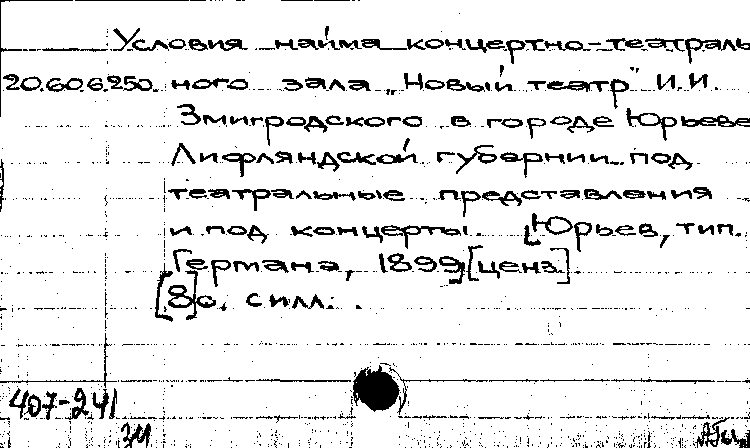 Условия найма концертно-театраль
20.60.6.250. ного зала „Новый театр" И.И.
Змигродского в городе Юрьеве
Лифляндской губернии под
театральные представления
и под концерты. [Юрьев, тип.
Германа, 1899] [ценз.].
[8] с. силл.
407-241